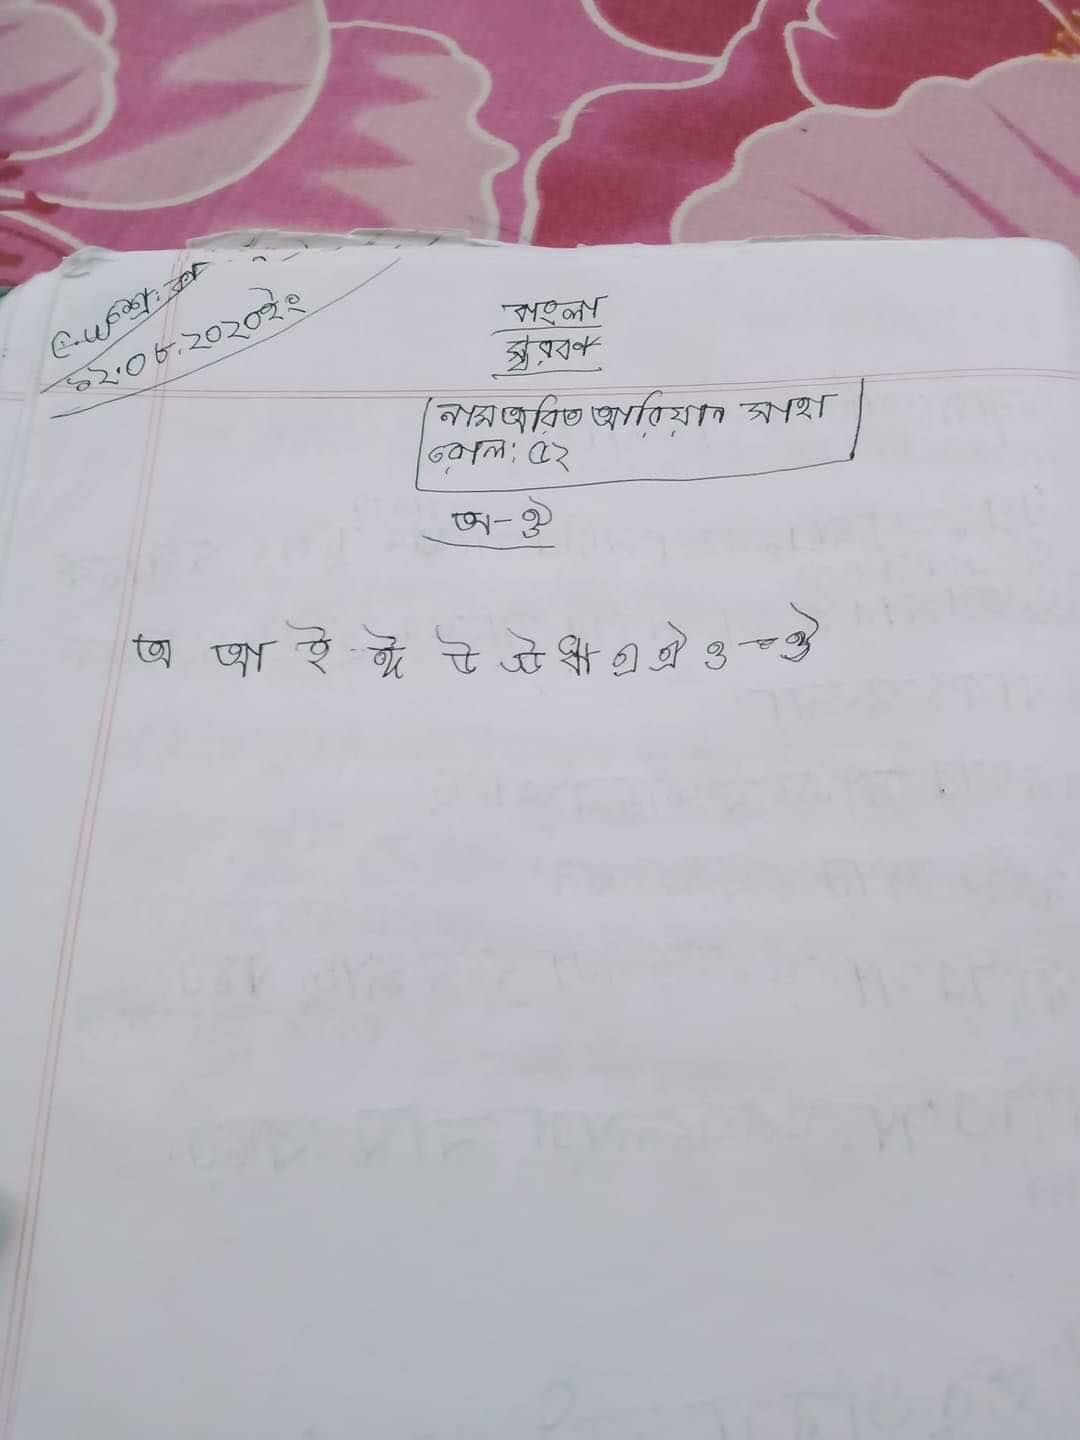 ১২.০৮.২০২০ইং
বাংলা
স্বরবর্ণ
নাম অরিত আরিয়ান সাহা
রোল: ৫২
অ-ঔ
অ আ ই ঈ উ ঊ ঋ এ ঐ ও - ঔ